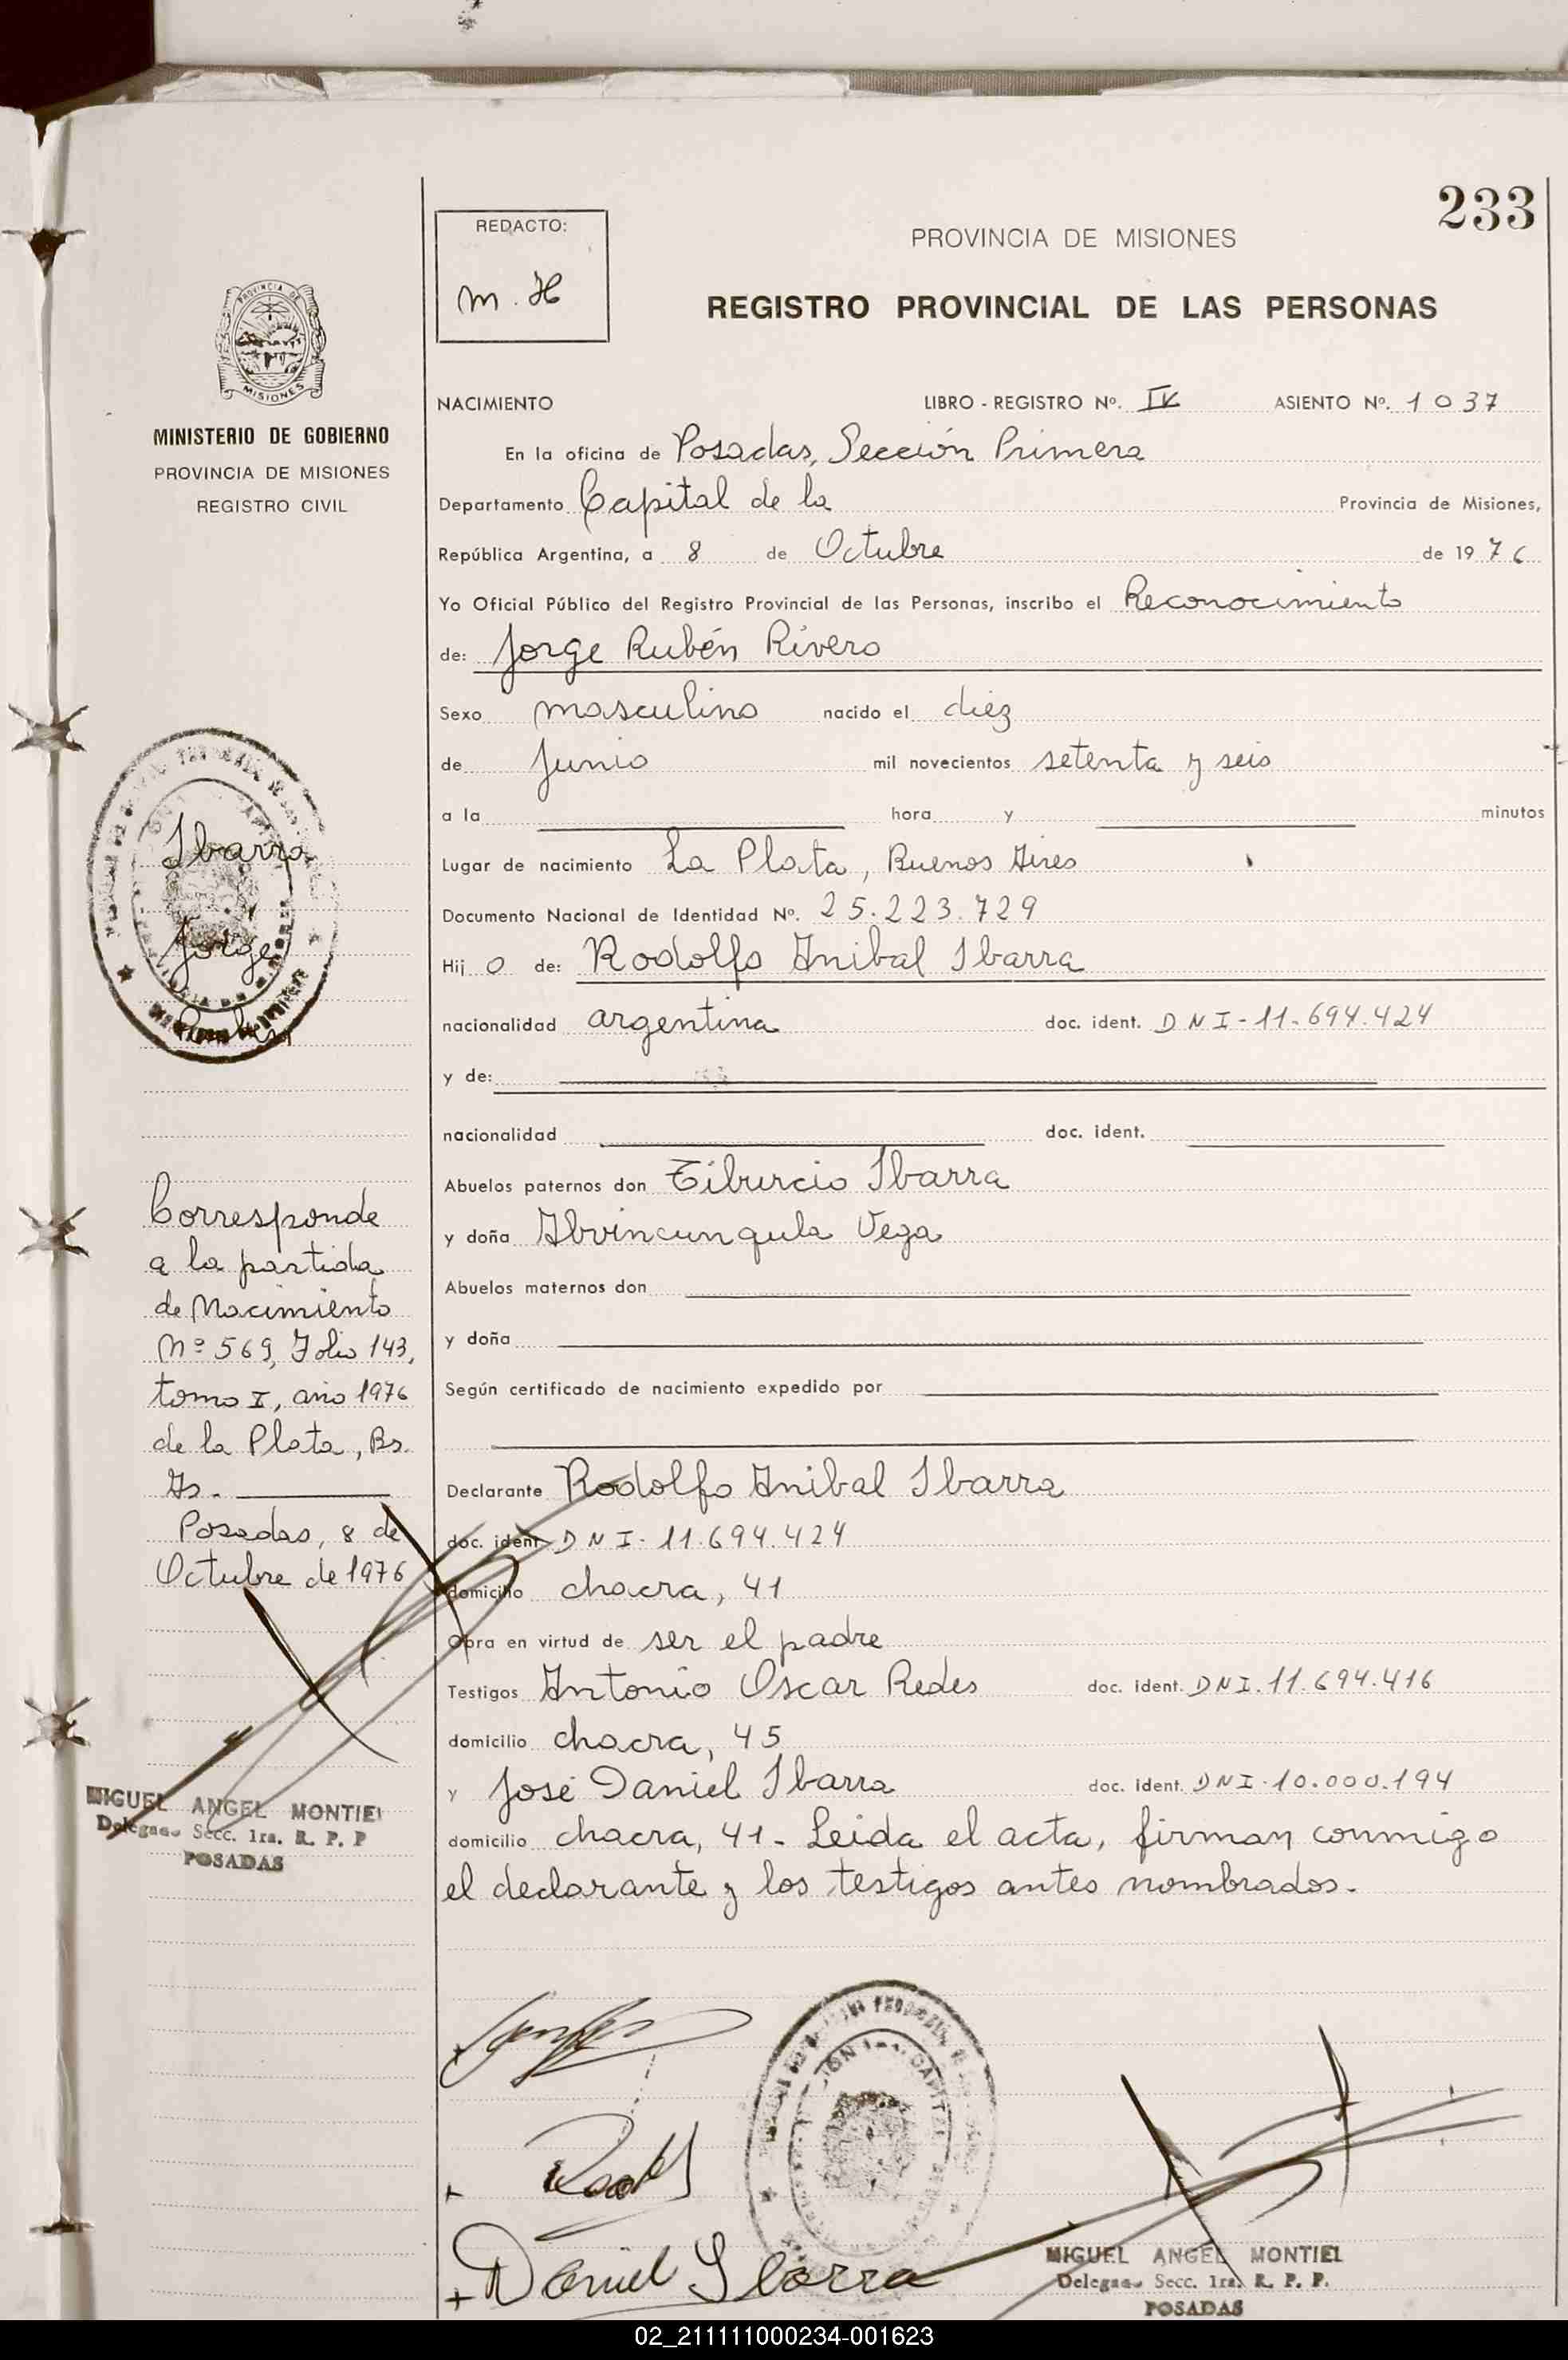 233
REDACTO:
m. H
PROVINCIA DE MISIONES
REGISTRO PROVINCIAL DE LAS PERSONAS
PROVINCIA DE
MISIONES
MINISTERIO DE GOBIERNO
PROVINCIA DE MISIONES
REGISTRO CIVIL
NACIMIENTO LIBRO - REGISTRO Nº. IV ASIENTO Nº. 1037
En la oficina de Posadas, Sección Primera
Departamento Capital de la Provincia de Misiones,
República Argentina, a 8 de Octubre de 1976
Yo Oficial Público del Registro Provincial de las Personas, inscribo el Reconocimiento
de: Jorge Rubén Rivero
Sexo masculino nacido el diez
de Junio mil novecientos setenta y seis
a la hora y minutos
Lugar de nacimiento La Plata, Buenos Aires
Documento Nacional de Identidad Nº. 25.223.729
Hij o de: Rodolfo Anibal Ibarra
nacionalidad argentina doc. ident. DNI-11.694.424
y de:
nacionalidad doc. ident.
Abuelos paternos don Tiburcio Ibarra
y doña Vega
Abuelos maternos don
y doña
Según certificado de nacimiento expedido por
Declarante Rodolfo Anibal Ibarra
doc. ident DNI-11.694.424
domicilio chacra, 41
Obra en virtud de ser el padre
Testigos Antonio Oscar Redes doc. ident. DNI.11.694.416
domicilio chacra, 45
y José Daniel Ibarra doc. ident. DNI.10.000.194
domicilio chacra, 41- Leida el acta, firman conmigo
el declarante y los testigos antes nombrados.
Ibarra
Jorge
Rubén
Corresponde
a la partida
de Nacimiento
Nº 569, Folio 143,
tomo I, año 1976
de la Plata, Bs.
As.
Posadas, 8 de
Octubre de 1976
MIGUEL ANGEL MONTIEL
Delegado Secc. 1ra. R. P. P
POSADAS
Daniel Ibarra
MIGUEL ANGEL MONTIEL
Delegado Secc. 1ra. R. P. P.
POSADAS
02_211111000234-001623